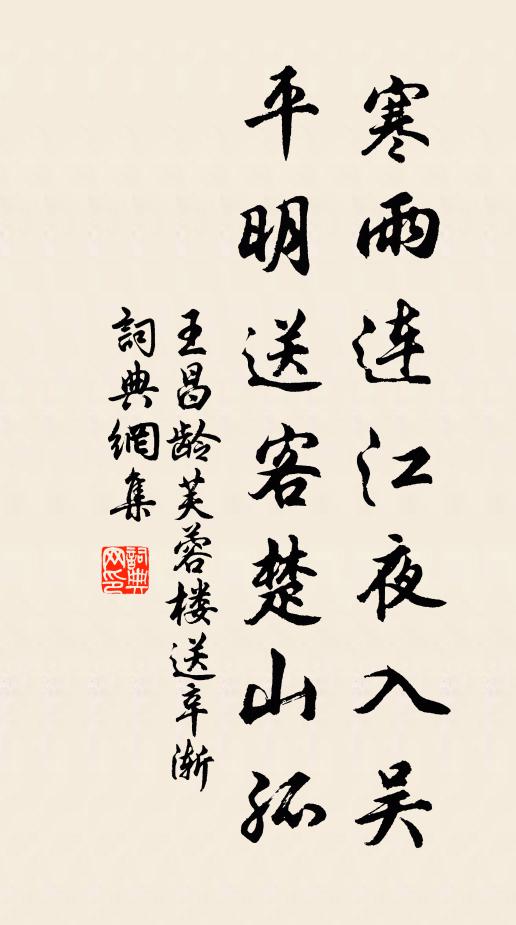 寒雨连江夜入吴
平明送客楚山孤
王昌龄芙蓉楼送辛渐
詞典網集
詞典网印